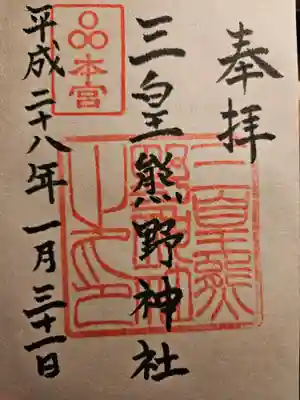 奉拝
三皇熊野神社
平成二十八年一月三十一日
本宮
三皇熊
野神社
之印